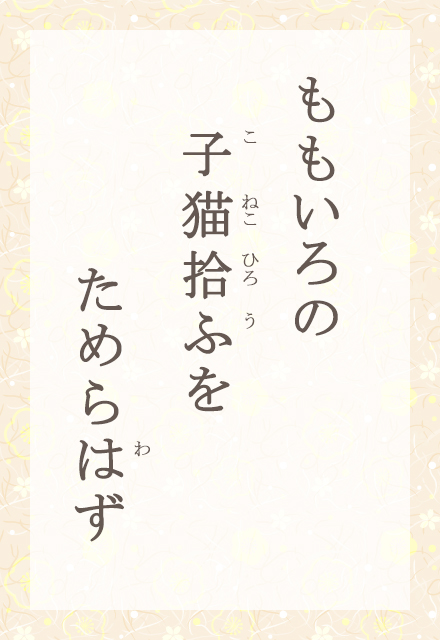 ももいろの
子猫拾ふを
こ ねこ ひろ う
ためらはず
わ